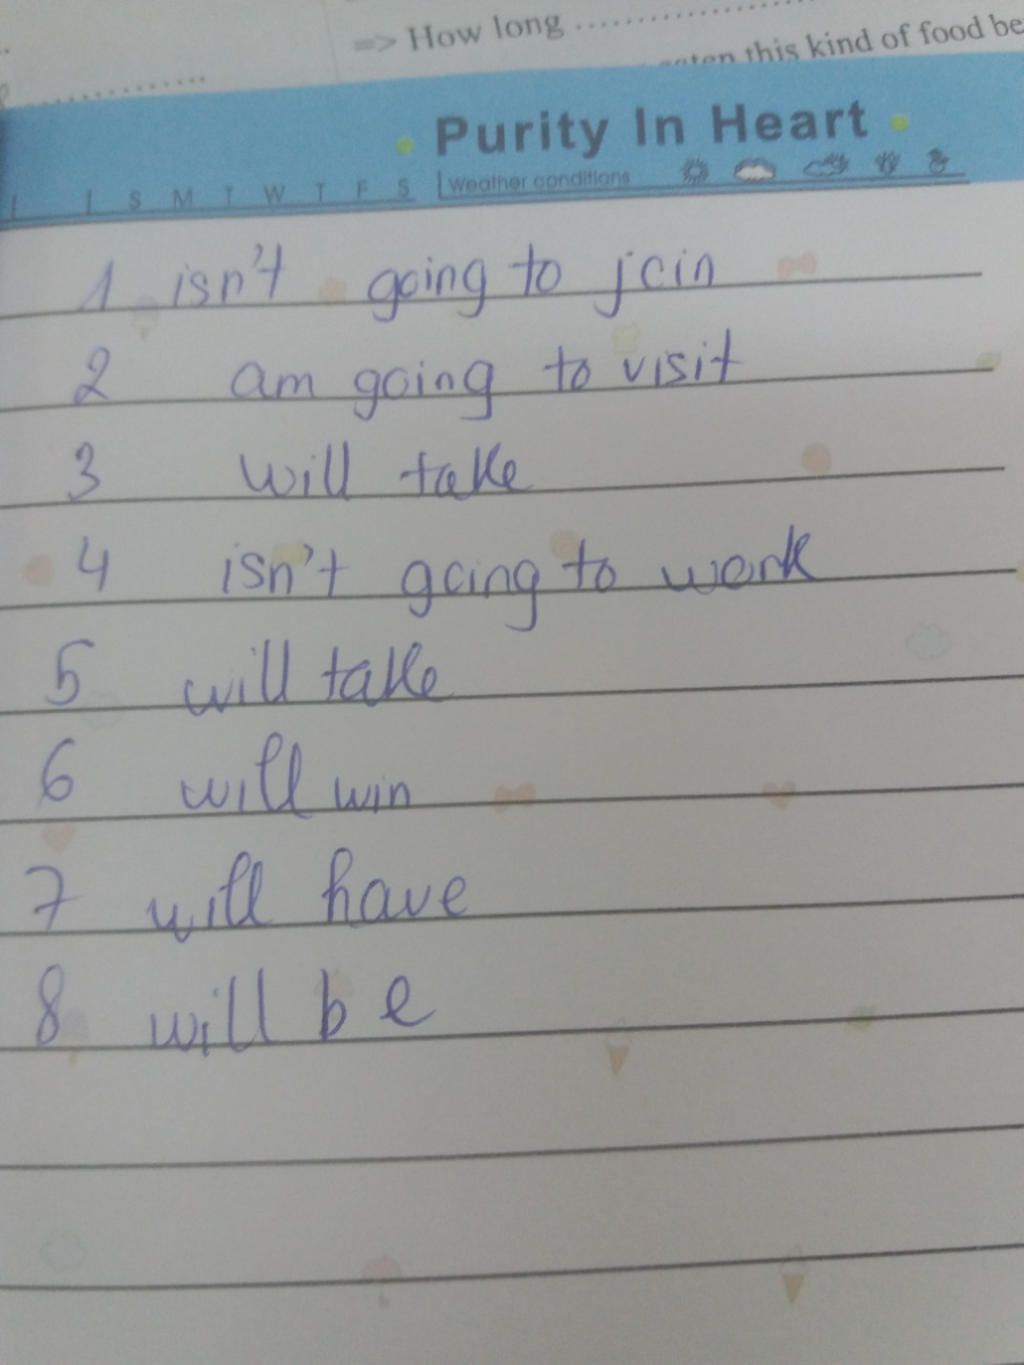 => How long ....................
eaten this kind of food be
Purity In Heart
S M T W T F S Weather conditions
1 isn't going to join
2 am going to visit
3 will take
4 isn't going to work
5 will take
6 will win
7 will have
8 will be